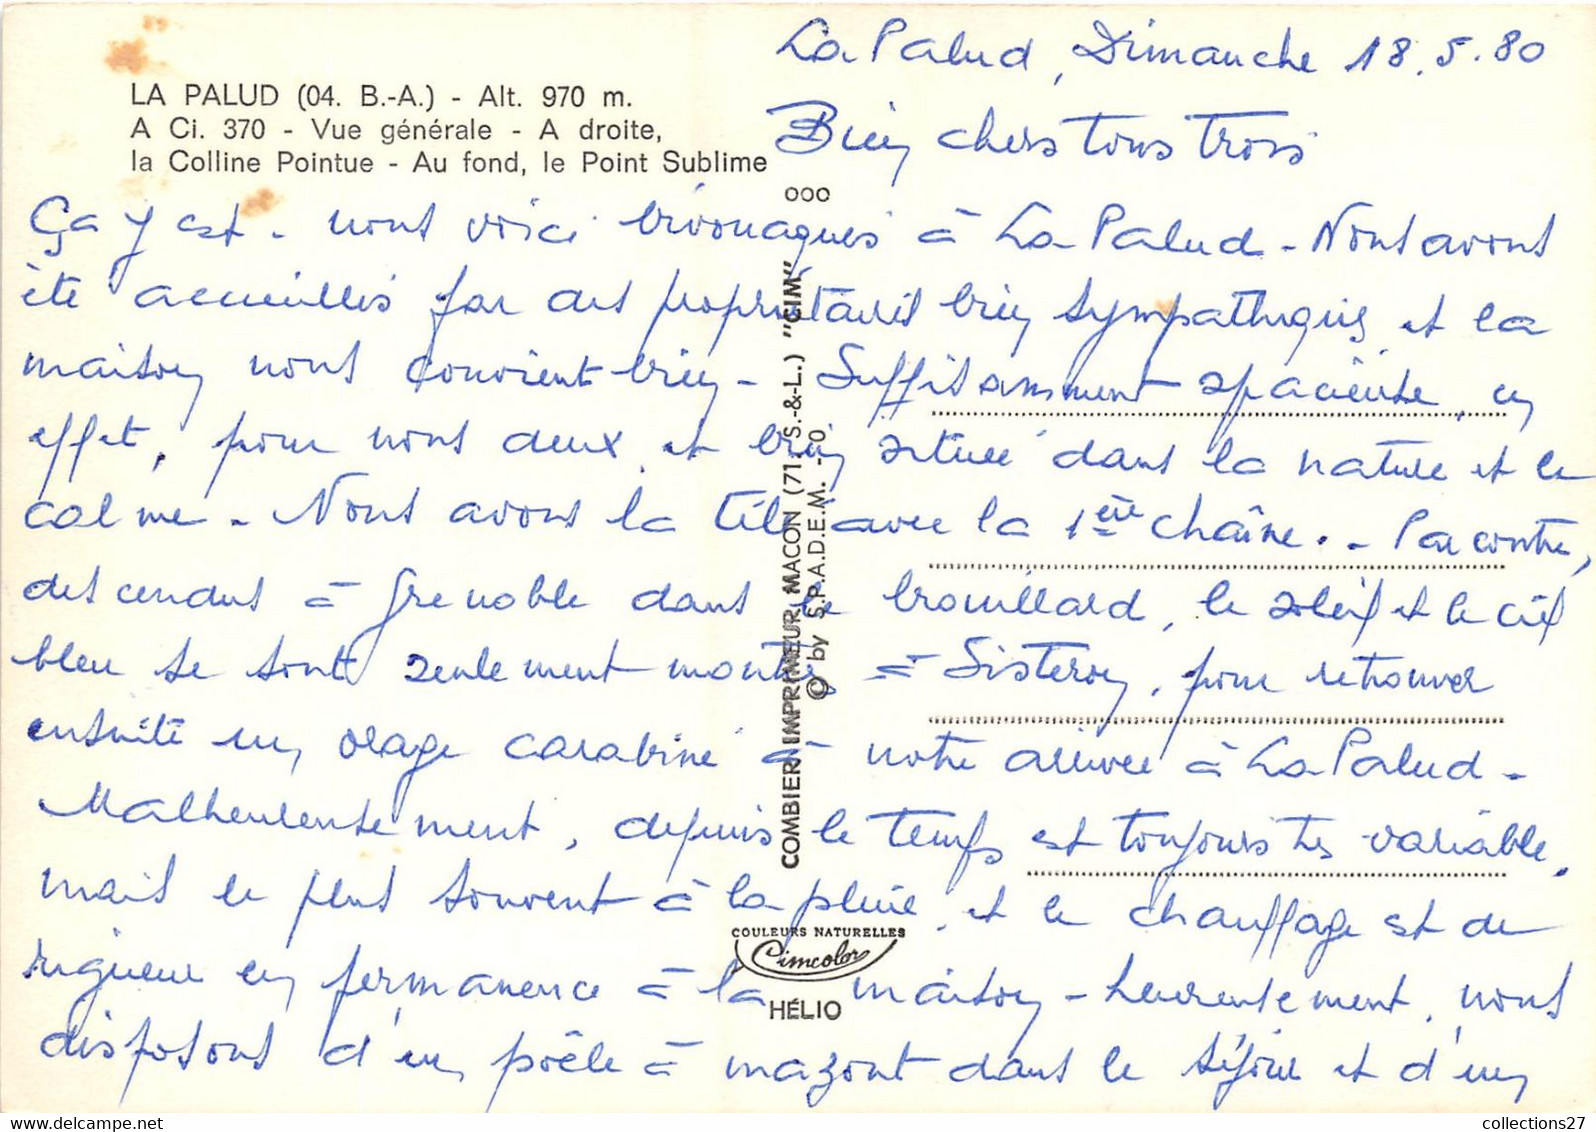 La Palud, Dimanche 18.5.80
LA PALUD (04. B.-A.) - Alt. 970 m.
A Ci. 370 - Vue générale - A droite,
la Colline Pointue - Au fond, le Point Sublime
Bien chers tous trois
Ça y est - nous voici bivouaqués à La Palud - Nous avons
été accueillis par des propriétaires bien sympathiques et la
maison nous convient bien - Suffisamment spacieuse, en
effet, pour nous deux, et bien située dans la nature et le
calme - Nous avons la télé avec la 1ère chaîne. - Par contre,
descendus à Grenoble dans le brouillard, le soleil et le ciel
bleu se sont seulement montrés à Sisteron, pour retrouver
ensuite un orage carabiné à notre arrivée à La Palud -
Malheureusement, depuis le temps est toujours très variable,
mais le plus souvent à la pluie, et le chauffage est de
rigueur en permanence à la maison - Heureusement, nous
disposons d'un poêle à mazout dans le séjour et d'un
COMBIER IMPRIMEUR MACON (71. S.-&-L.) "CIM"
© by S.P.A.D.E.M. - 70
COULEURS NATURELLES
Cimcolor
HÉLIO
www.delcampe.net
collections27